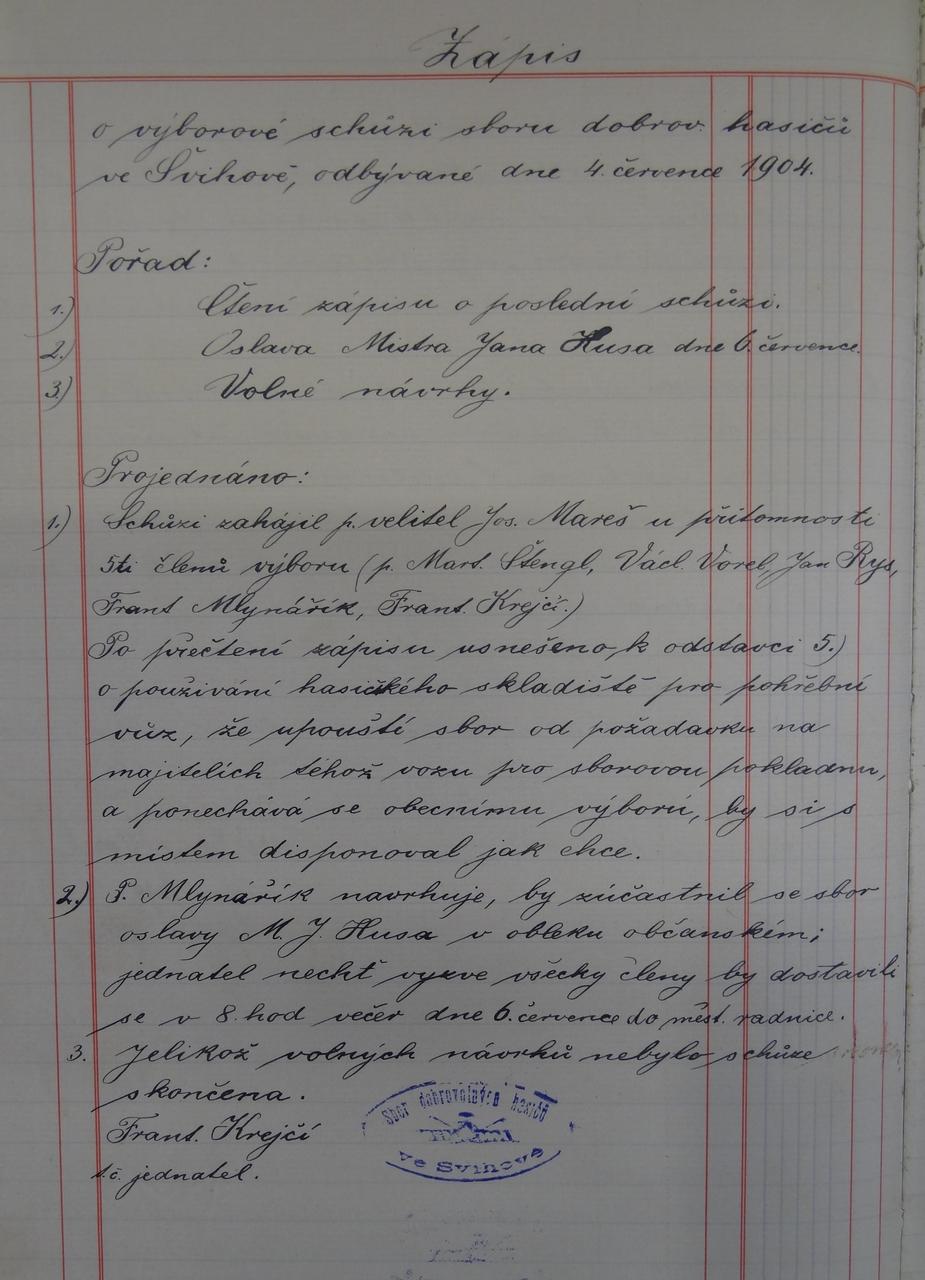 Zápis
o výborové schůzi sboru dobrov. hasičů
ve Švihově, odbývané dne 4. července 1904.
Pořad:
1.) Čtení zápisu o poslední schůzi.
2.) Oslava Mistra Jana Husa dne 6. července.
3.) Volné návrhy.
Projednáno:
1.) Schůzi zahájil p. velitel Jos. Mareš u přítomnosti
5ti členů výboru (p. Mart. Štengl, Václ. Vorel, Jan Rys,
Frant Mlynářík, Frant. Krejčí.)
Po přečtení zápisu usnešeno, k odstavci 5.)
o používání hasičkého skladiště pro pohřební
vůz, že upouští sbor od požadavku na
majitelích téhož vozu pro sborovou pokladnu,
a ponechává se obecnímu výboru, by si s
místem disponoval jak chce.
2.) P. Mlynářík navrhuje, by zúčastnil se sbor
oslavy M. J. Husa v obleku občanském;
jednatel nechť vyzve všecky členy by dostavili
se v 8. hod večer dne 6. července do měst. radnice.
3. Jelikož volných návrhů nebylo schůze
skončena.
Frant. Krejčí
t. č. jednatel.
Sbor dobrovolných hasičů
ve Švihově